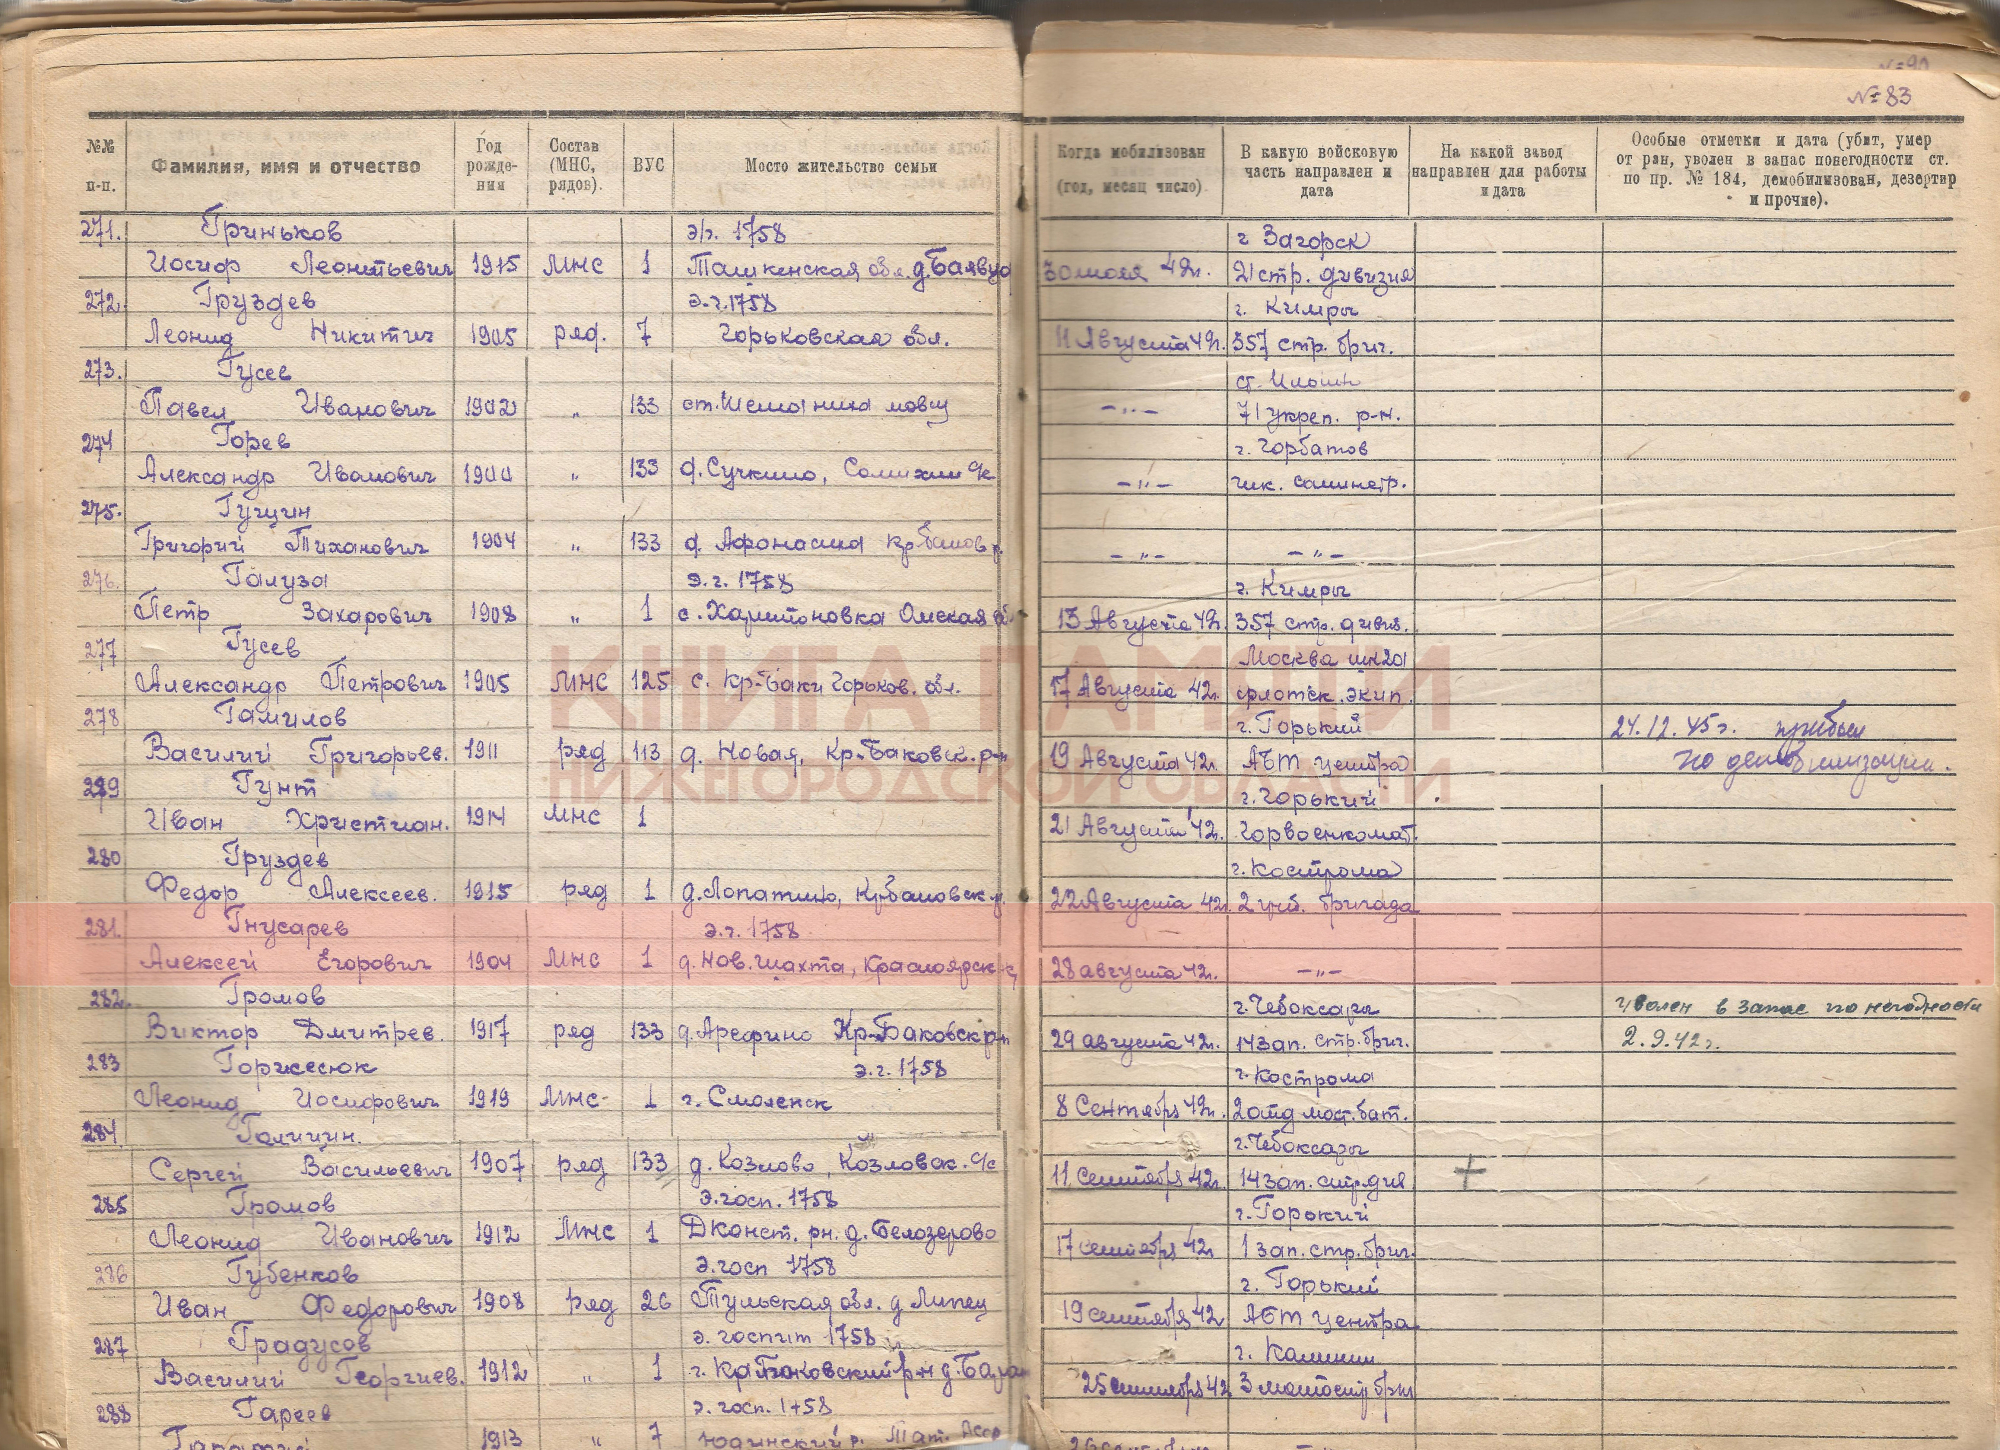 № 90
№ 83
№№ п-п.
Фамилия, имя и отчество
Год рожде- ния
Состав (МНС, рядов).
ВУС
Место жительство семьи
Когда мобилизован (год, месяц число).
В какую войсковую часть направлен и дата
На какой завод направлен для работы и дата
Особые отметки и дата (убит, умер от ран, уволен в запас понегодности ст. по пр. № 184, демобилизован, дезертир и прочие).
271. Гриньков э/г. 1758 г Загорск
Иосиф Леонтьевич 1915 МНС 1 Ташкенская обл. 42г. 21 стр. дивизия
272. Груздев э.г. 1758 г. Кимры
Леонид Никитич 1905 ряд. 7 Горьковская обл. 11 Августа 42г. 357 стр. бриг.
273. Гусев ст.
Павел Иванович 1902 " 133 ст. -"- 71 укреп. р-н.
274 Горев г. Горбатов
Александр Иванович 1900 " 133 д. Сучкино, -"-
275. Гущин
Григорий Тиханович 1904 " 133 д. -"- -"-
276. Галуза э.г. 1758 г. Кимры
Петр Захарович 1908 " 1 с. Харитоновка Омская 13 Августа 42г. 357 стр. дивиз.
277 Гусев Москва
Александр Петрович 1905 МНС 125 с. Кр-Баки Горьков. обл. 17 Августа 42г. флотск. экип.
278 Гамилов г. Горький 24.12.45г. прибыл
Василий Григорьев. 1911 ряд 113 д. Новая, Кр-Баковск. р-н 19 Августа 42г. АБТ центра по демобилизации.
279 Гунт г. Горький
Иван Христиан. 1914 МНС 1 21 Августа 42г. Горвоенкомат.
280 Груздев г. Кострома
Федор Алексеев. 1915 ряд 1 д. Лопатино, 22 Августа 42г. 2 уч. бригада
281. Гнусарев э.г. 1758
Алексей Егорович 1904 МНС 1 д. Нов. Шахта, Красноярск. 28 августа 42г. -"-
282. Громов г. Чебоксары уволен в запас по негодности
Виктор Дмитрев. 1917 ряд 133 д. Арефино Кр-Баковск р-н 29 августа 42г. 14 зап. стр. бриг. 2.9.42г.
283 Горжесюк э.г. 1758 г. Кострома
Леонид Иосифович 1919 МНС- 1 г. Смоленск 8 Сентября 42г. 2 отд мост. бат.
284. Галицин. г. Чебоксары
Сергей Васильевич 1907 ряд 133 д. Козлово, Козловск. с/с 11 Сентября 42г. 14 зап. стр. див +
285 Громов э. госп. 1758 г. Горький
Леонид Иванович 1912 МНС 1 Дконст. рн. д. Белозерово 17 сентября 42г 1 зап. стр. бриг.
286 Губенков э. госп 1758 г. Горький
Иван Федорович 1908 ряд 26 Тульская обл. д Липец 19 сентября 42 АБТ центра
287 Градусов э. госпит 1758 г. Калинин
Василий Георгиев. 1912 " 1 г. КрБаковский р-н д. 25 сентября 42 3
288 Гареев э. госп. 1758
1913 " 7 р. Тат. Асср -"-
КНИГА ПАМЯТИ
НИЖЕГОРОДСКОЙ ОБЛАСТИ